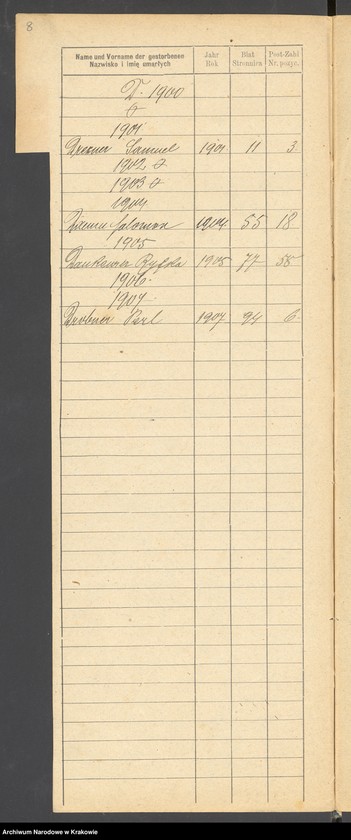 8
Name und Vorname der gestorbenen
Nazwisko i imię umarłych
Jahr
Rok
Blatt
Stronnica
Post-Zahl
Nr. pozyc.
D. 1900
1901
Dresner Samuel 1901 11 3
1902
1903
1904
Salomon 1904 55 18
1905
Ryfka 1905 77 58
1906
1907
Drobner Berl 1907 94 6
Archiwum Narodowe w Krakowie